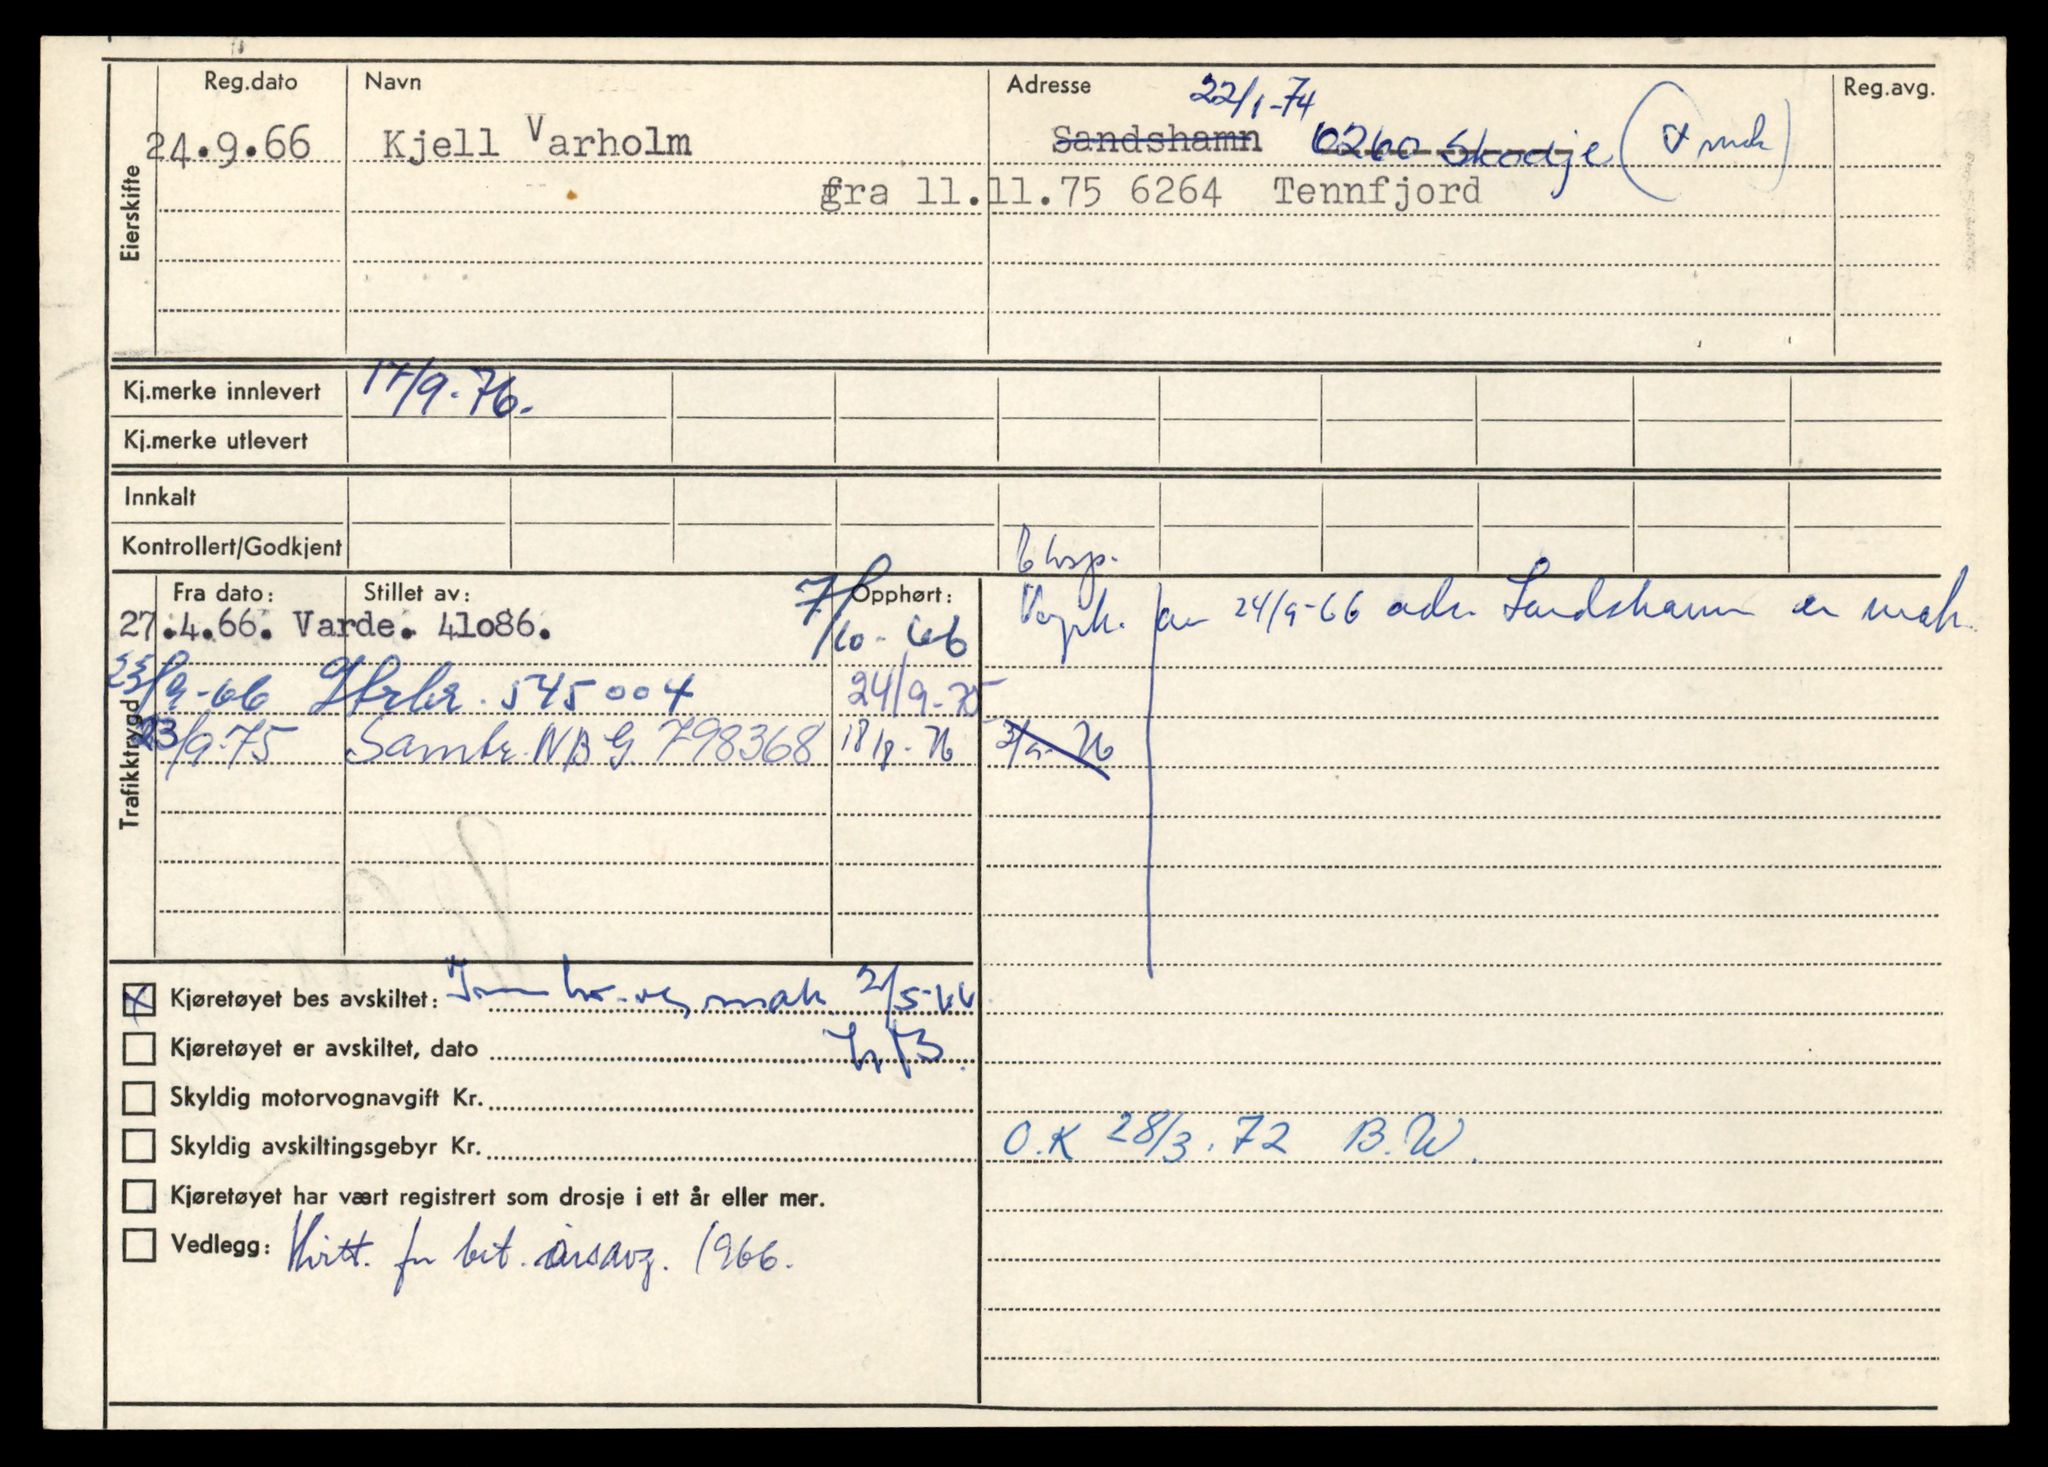 Reg.dato Navn Adresse 22/1-74 Reg.avg.
24.9.66 Kjell Varholm Sandshamn 6260 Skodje (+ mak)
fra 11.11.75 6264 Tennfjord
Eierskifte
Kj.merke innlevert 17/9-76.
Kj.merke utlevert
Innkalt
Kontrollert/Godkjent
Fra dato: Stillet av: Opphørt:
27.4.66. Varde. 41086. 7/10-66
Vognk. av 24/9-66 adr. Sandshamn er mak.
23/9-66 545004 24/9-75
23/9-75 Samtr. NBG 798368 18/8-76 3/9-76
Trafikktrygd
Kjøretøyet bes avskiltet: mak 2/5-66
Kjøretøyet er avskiltet, dato
Skyldig motorvognavgift Kr.
Skyldig avskiltingsgebyr Kr. O.K 28/3.72 B.W.
Kjøretøyet har vært registrert som drosje i ett år eller mer.
Vedlegg: Kvitt. for bet. årsavg. 1966.